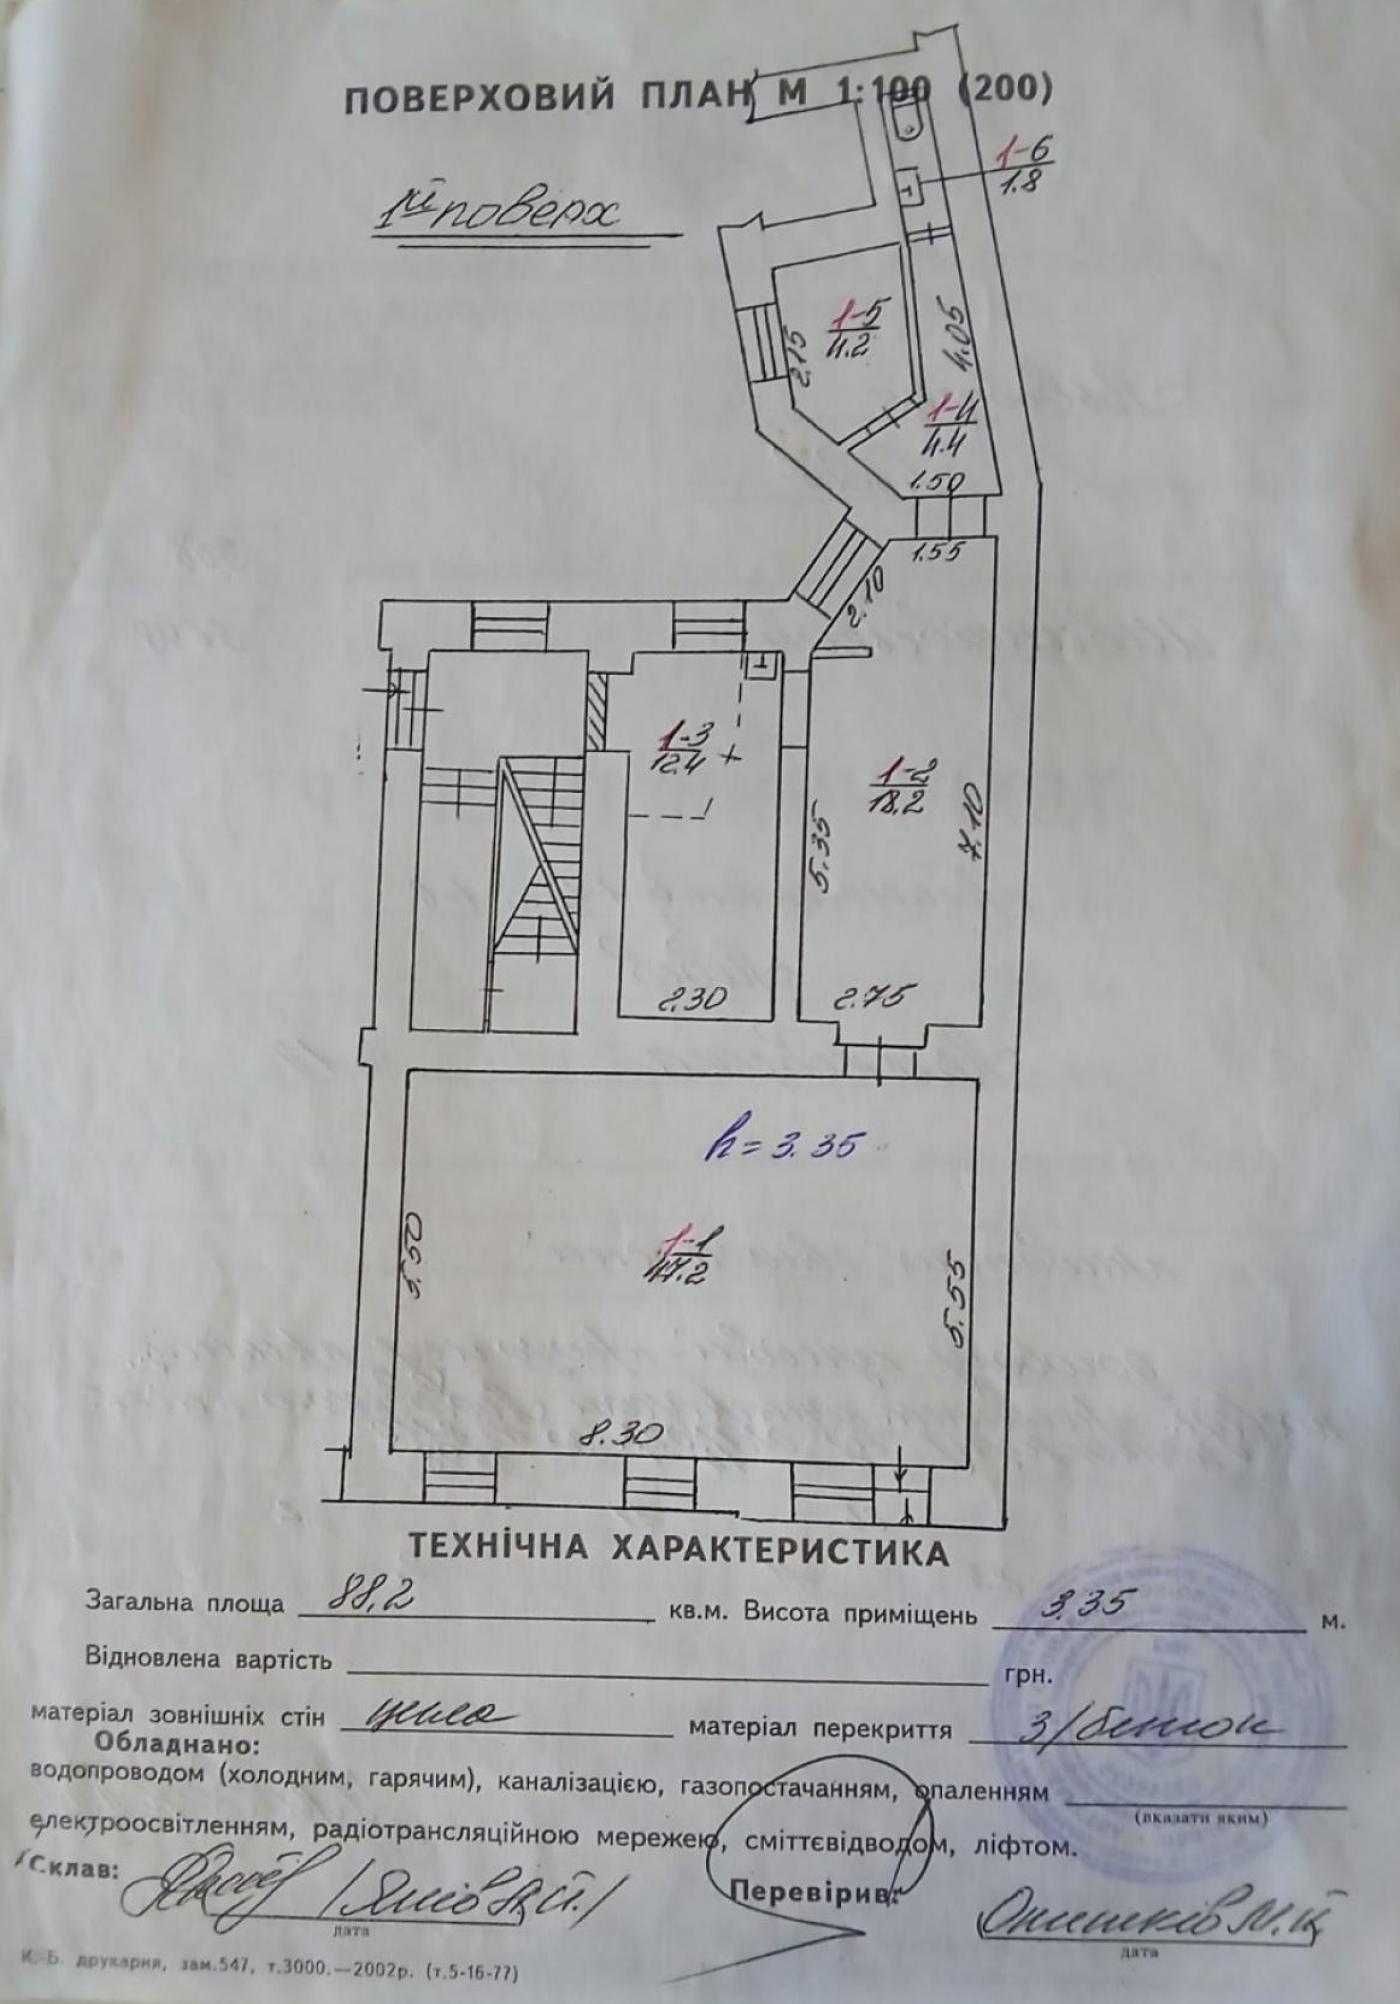 ПОВЕРХОВИЙ ПЛАН М 1:100 (200)
1ий поверх
1-6
1.8
1-5
4.2
2.15
4.05
1-4
4.4
1.50
1.55
2.10
1-3
12.4
1-2
18.2
5.35
7.10
2.30
2.75
h = 3.35
1-1
47.2
5.50
5.55
8.30
ТЕХНІЧНА ХАРАКТЕРИСТИКА
Загальна площа 88,2 кв.м. Висота приміщень 3.35 м.
Відновлена вартість грн.
матеріал зовнішніх стін цегла матеріал перекриття з/бетон
Обладнано:
водопроводом (холодним, гарячим), каналізацією, газопостачанням, опаленням
(вказати яким)
електроосвітленням, радіотрансляційною мережею, сміттєвідводом, ліфтом.
Склав:
Перевірив:
дата
дата
К.-Б. друкарня, зам.547, т.3000.—2002р. (т.5-16-77)